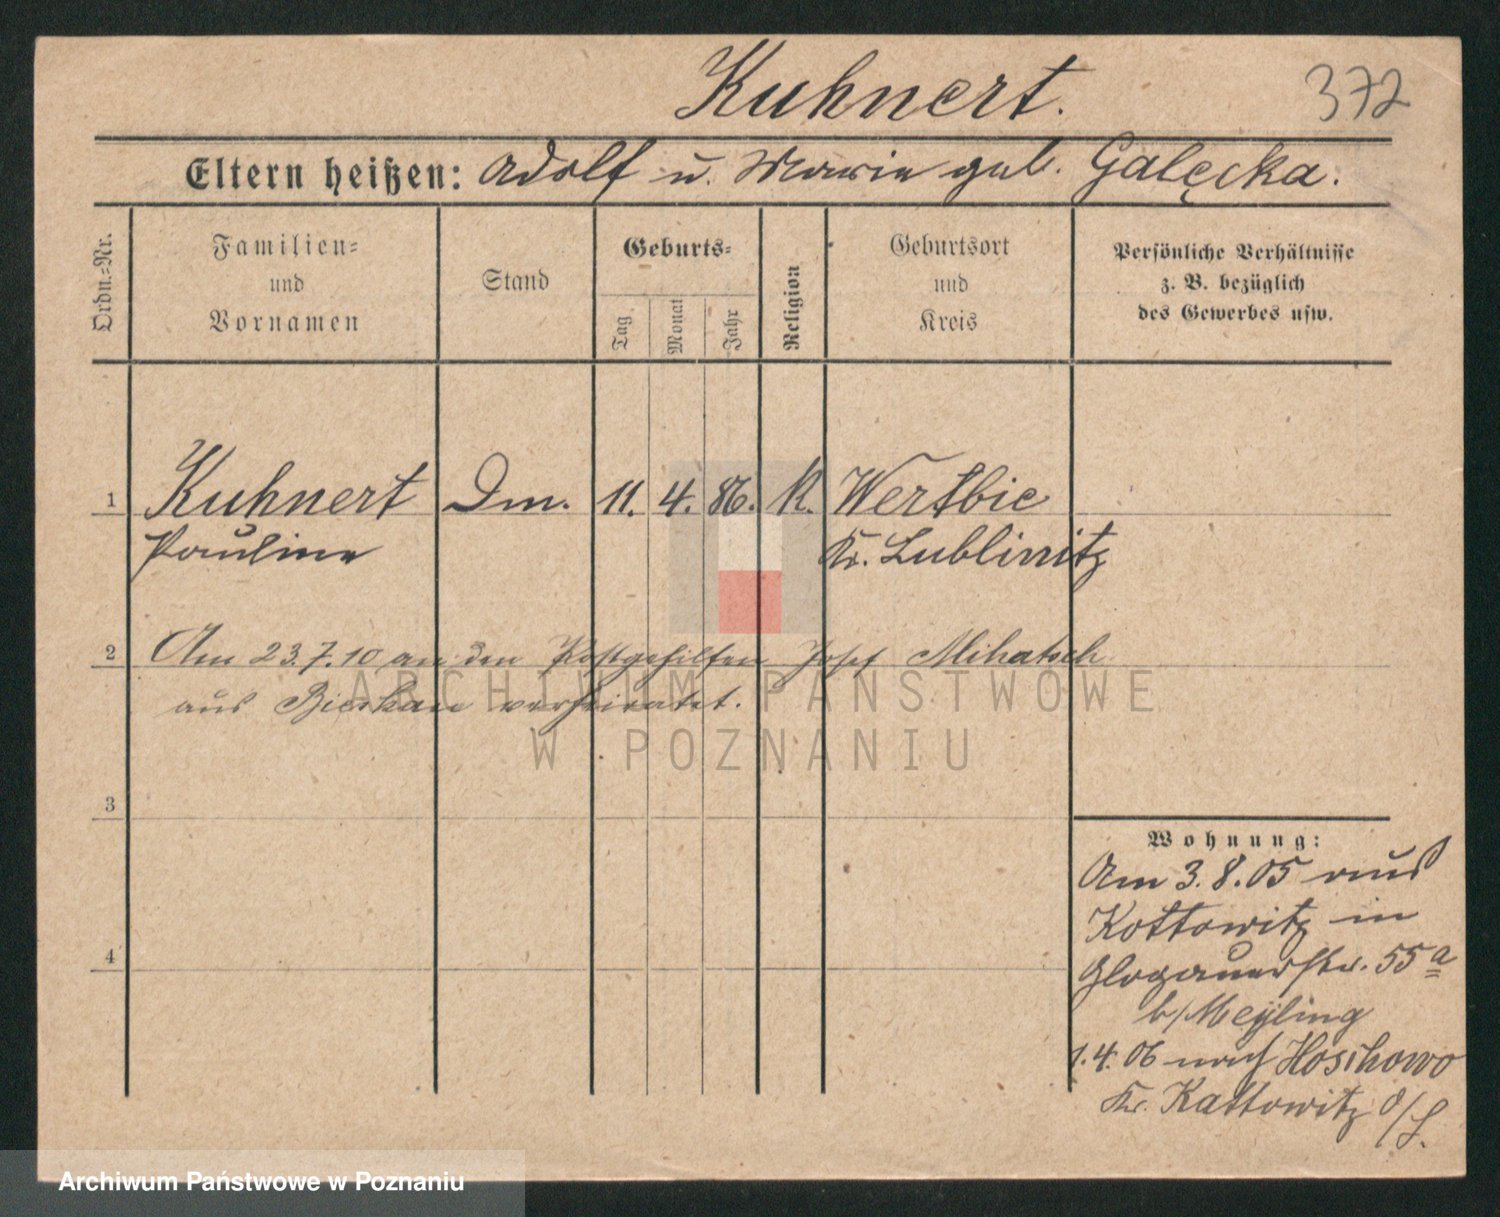 Kuhnert.
372
Eltern heißen: Adolf u. Marie geb. Galęcka.
Ordn.-Nr.
Familien-
und
Vornamen
Stand
Geburts-
Tag
Monat
Jahr
Religion
Geburtsort
und
Kreis
Persönliche Verhältnisse
z. B. bezüglich
des Gewerbes usw.
1 Kuhnert Dm. 11. 4. 86. K. Wertbie
Pauline Kr. Lublinitz
2 Am 23.7.10 an den Postgehilfen Josef Mihatsch
aus Bieskau verheiratet.
ARCHIWUM PAŃSTWOWE
W POZNANIU
3
4
Wohnung:
Am 3.8.05 aus
Kottowitz in
Glogauerstr. 55a
b/Meyling
1.4.06 nach Hosihowo
Kr. Kattowitz O/S.
Archiwum Państwowe w Poznaniu